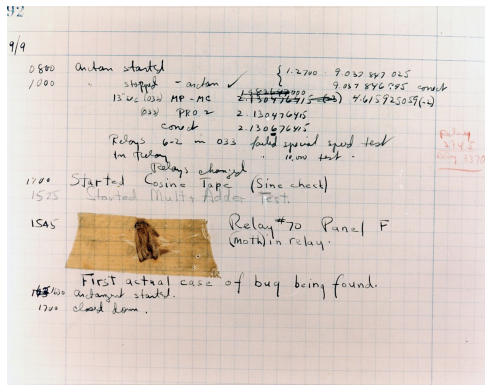 92
9/9
0800 antan started { 1.2700 9.037 847 025
1000 " stopped - antan ✓ 9.037 846 995 conect
13"uc (032) MP - MC 2.130476415 (-3) 4.615925059(-2)
(033) PRO 2 2.130476415
conect 2.130676415
Relays 6-2 in 033 failed special speed test
in relay " 10,000 test.
Relay 2145
Relay 3370
Relays changed
1700 Started Cosine Tape (Sine check)
1525 Started Mult+Adder Test.
1545 Relay #70 Panel F
(moth) in relay.
First actual case of bug being found.
1630 antangent started.
1700 closed down.